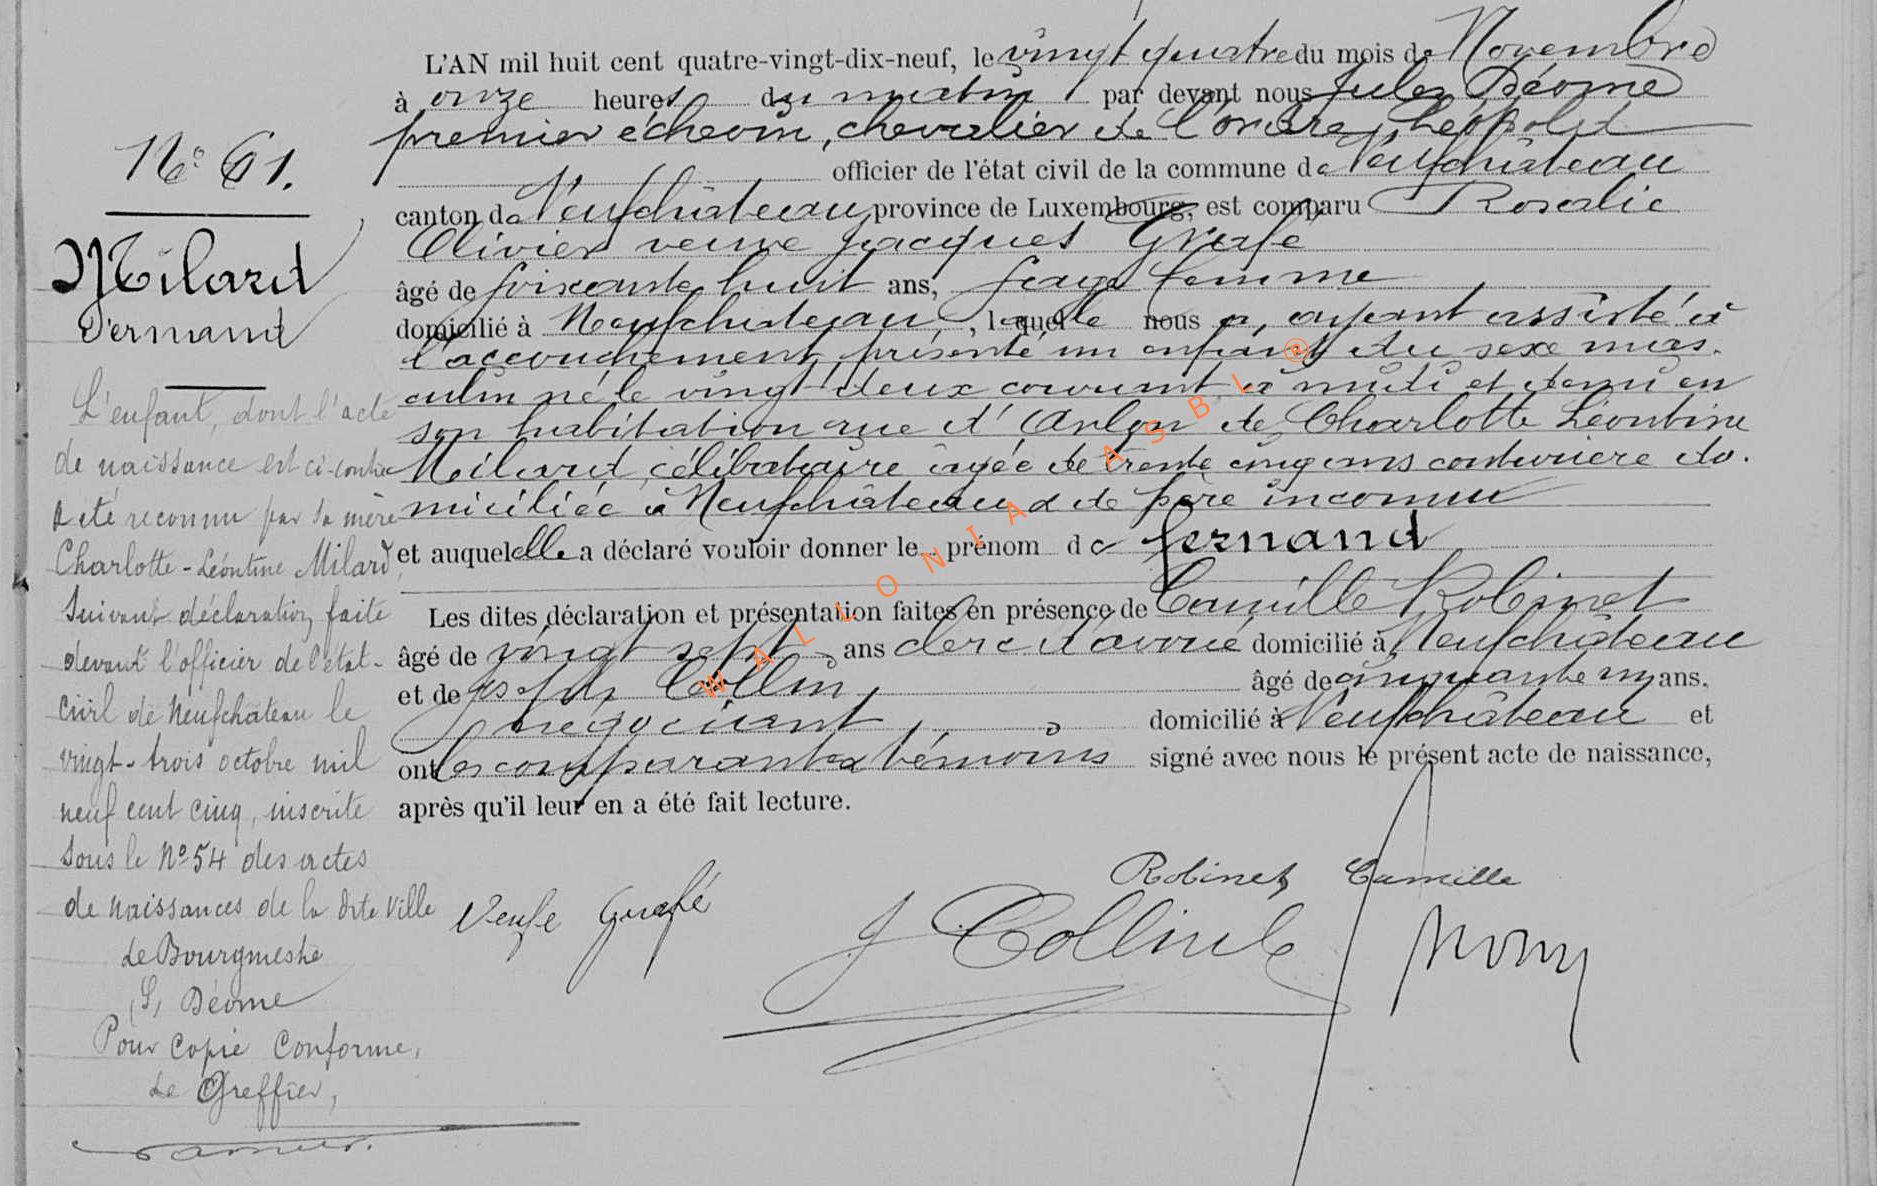 N° 61.
Milard
Fernand
L'enfant, dont l'acte
de naissance est ci-contre
a été reconnu par sa mère
Charlotte-Léontine Milard,
suivant déclaration faite
devant l'officier de l'état-
civil de Neufchâteau le
vingt-trois octobre mil
neuf cent cinq, inscrite
sous le N° 54 des actes
de naissances de la dite ville
Le Bourgmestre
(S) Déome
Pour copie conforme,
Le Greffier,
L'AN mil huit cent quatre-vingt-dix-neuf, le vingt quatre du mois de Novembre
à onze heures du matin par devant nous Jules Déome
premier échevin, chevalier de l'ordre Léopold
officier de l'état civil de la commune de Neufchâteau
canton de Neufchâteau province de Luxembourg, est comparu Rosalie
Olivier veuve Jacques Grafé
âgé de soixante huit ans, sage femme
domicilié à Neufchâteau, laquelle nous a, ayant assisté à
l'accouchement, présenté un enfant du sexe mas-
culin né le vingt deux courant à midi et demi en
son habitation rue d'Arlon de Charlotte Léontine
Milard, célibataire âgée de trente cinq ans couturière do-
miciliée à Neufchâteau & de père inconnu
et auquel elle a déclaré vouloir donner le prénom de Fernand
Les dites déclaration et présentation faites en présence de Camille Robinet
âgé de vingt sept ans clerc d'avoué domicilié à Neufchâteau
et de Joseph Collin, âgé de cinquante un ans.
négociant, domicilié à Neufchâteau et
ont les comparante & témoins signé avec nous le présent acte de naissance,
après qu'il leur en a été fait lecture.
Robinet Camille
Veuve Grafé
J Collin
WALLONIA ASBL @